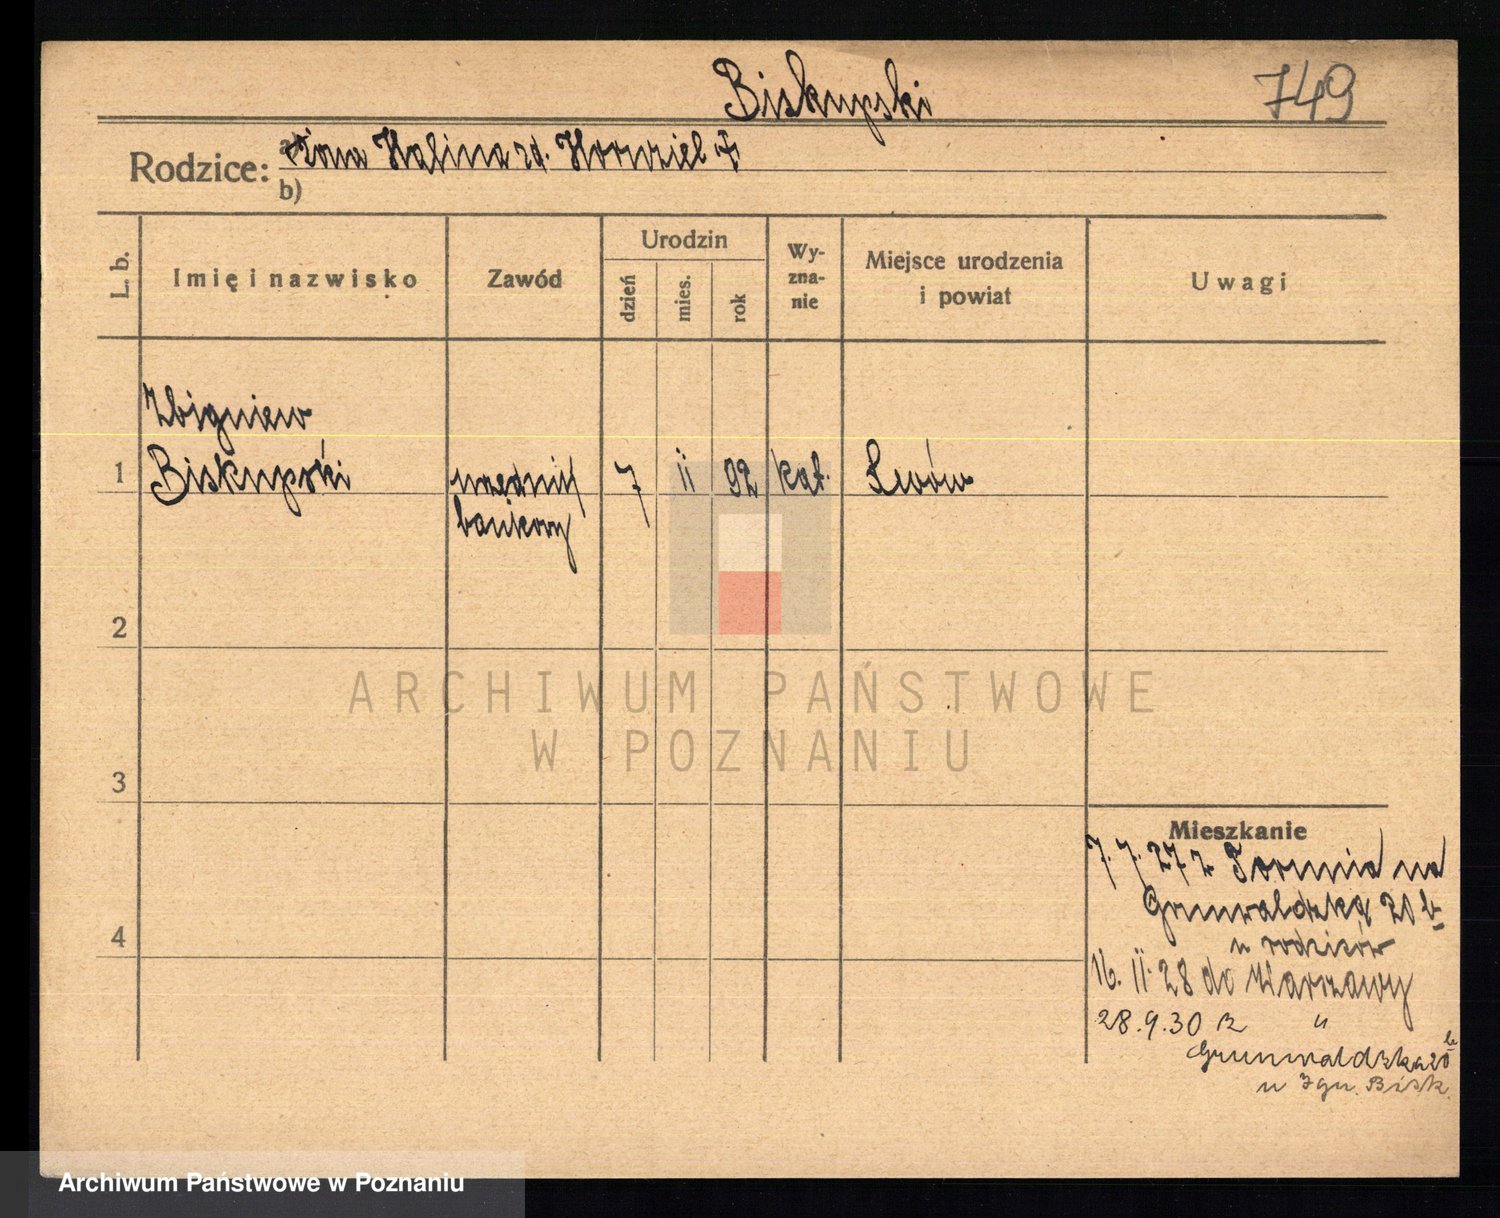 Biskupski
749
Rodzice:
a) żona Halina zd.
b)
L. b.
Imię i nazwisko
Zawód
Urodzin
dzień
mies.
rok
Wy-
zna-
nie
Miejsce urodzenia
i powiat
Uwagi
Zbigniew
1 Biskupski urzędnik 7 II 02 kat. Lwów
bankowy
2
ARCHIWUM PAŃSTWOWE
W POZNANIU
3
Mieszkanie
7.7.27 z Torunia na
Grunwaldzką 20 b
u rodziców
4
16. II. 28 do Warszawy
28.9.30 z "
Grunwaldzka 20 b
u Ign. Bisk.
Archiwum Państwowe w Poznaniu